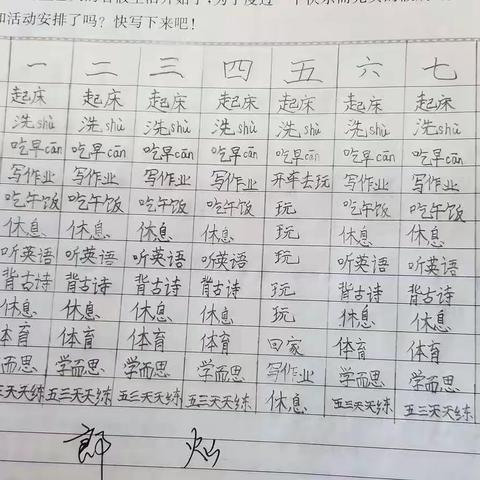 和活动安排了吗？快写下来吧！
一 二 三 四 五 六 七
起床 起床 起床 起床 起床 起床 起床
洗shù 洗shù 洗shù 洗shù 洗shù 洗shù 洗shù
吃早cān 吃早cān 吃早cān 吃早cān 吃早cān 吃早cān 吃早cān
写作业 写作业 写作业 写作业 开车去玩 写作业 写作业
吃午饭 吃午饭 吃午饭 吃午饭 玩 吃午饭 吃午饭
休息 休息 休息 休息 玩 休息 休息
听英语 听英语 听英语 听英语 玩 听英语 听英语
背古诗 背古诗 背古诗 背古诗 玩 背古诗 背古诗
休息 休息 休息 休息 玩 休息 休息
体育 体育 体育 体育 回家 体育 体育
学而思 学而思 学而思 学而思 写作业 学而思 学而思
五三天天练 五三天天练 五三天天练 五三天天练 休息 五三天天练 五三天天练